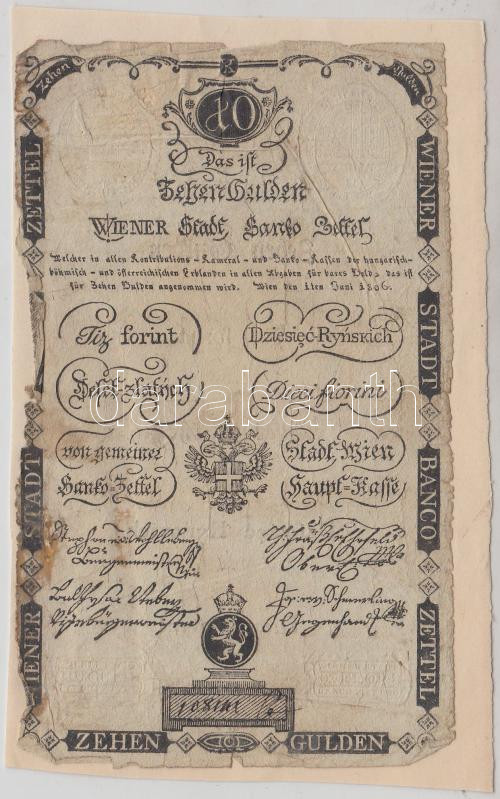 Zehen
K
Gulden
10
Das ist
Zehen Gulden
WIENER Stadt Banko Zettel
Welcher in allen Kontributions-Kameral- und Banko-Kassen der hungarisch-
böhmisch- und österreichischen Erblanden in allen Abgaben für bares Geld, das ist
für Zehen Gulden angenommen wird. Wien den 1ten Juni 1806.
Tiz forint
Dziesięć-Ryńskich
Deset-zlatých
Dieci fiorini
darabanth
von gemeiner
Stadt-Wien
Banko-Zettel
Haupt-Kasse
Burgermeister
Ober
Vizebürgermeister
Gegenhand
WIENER STADT BANCO ZETTEL
WIENER STADT
ZETTEL
ZEHEN
GULDEN